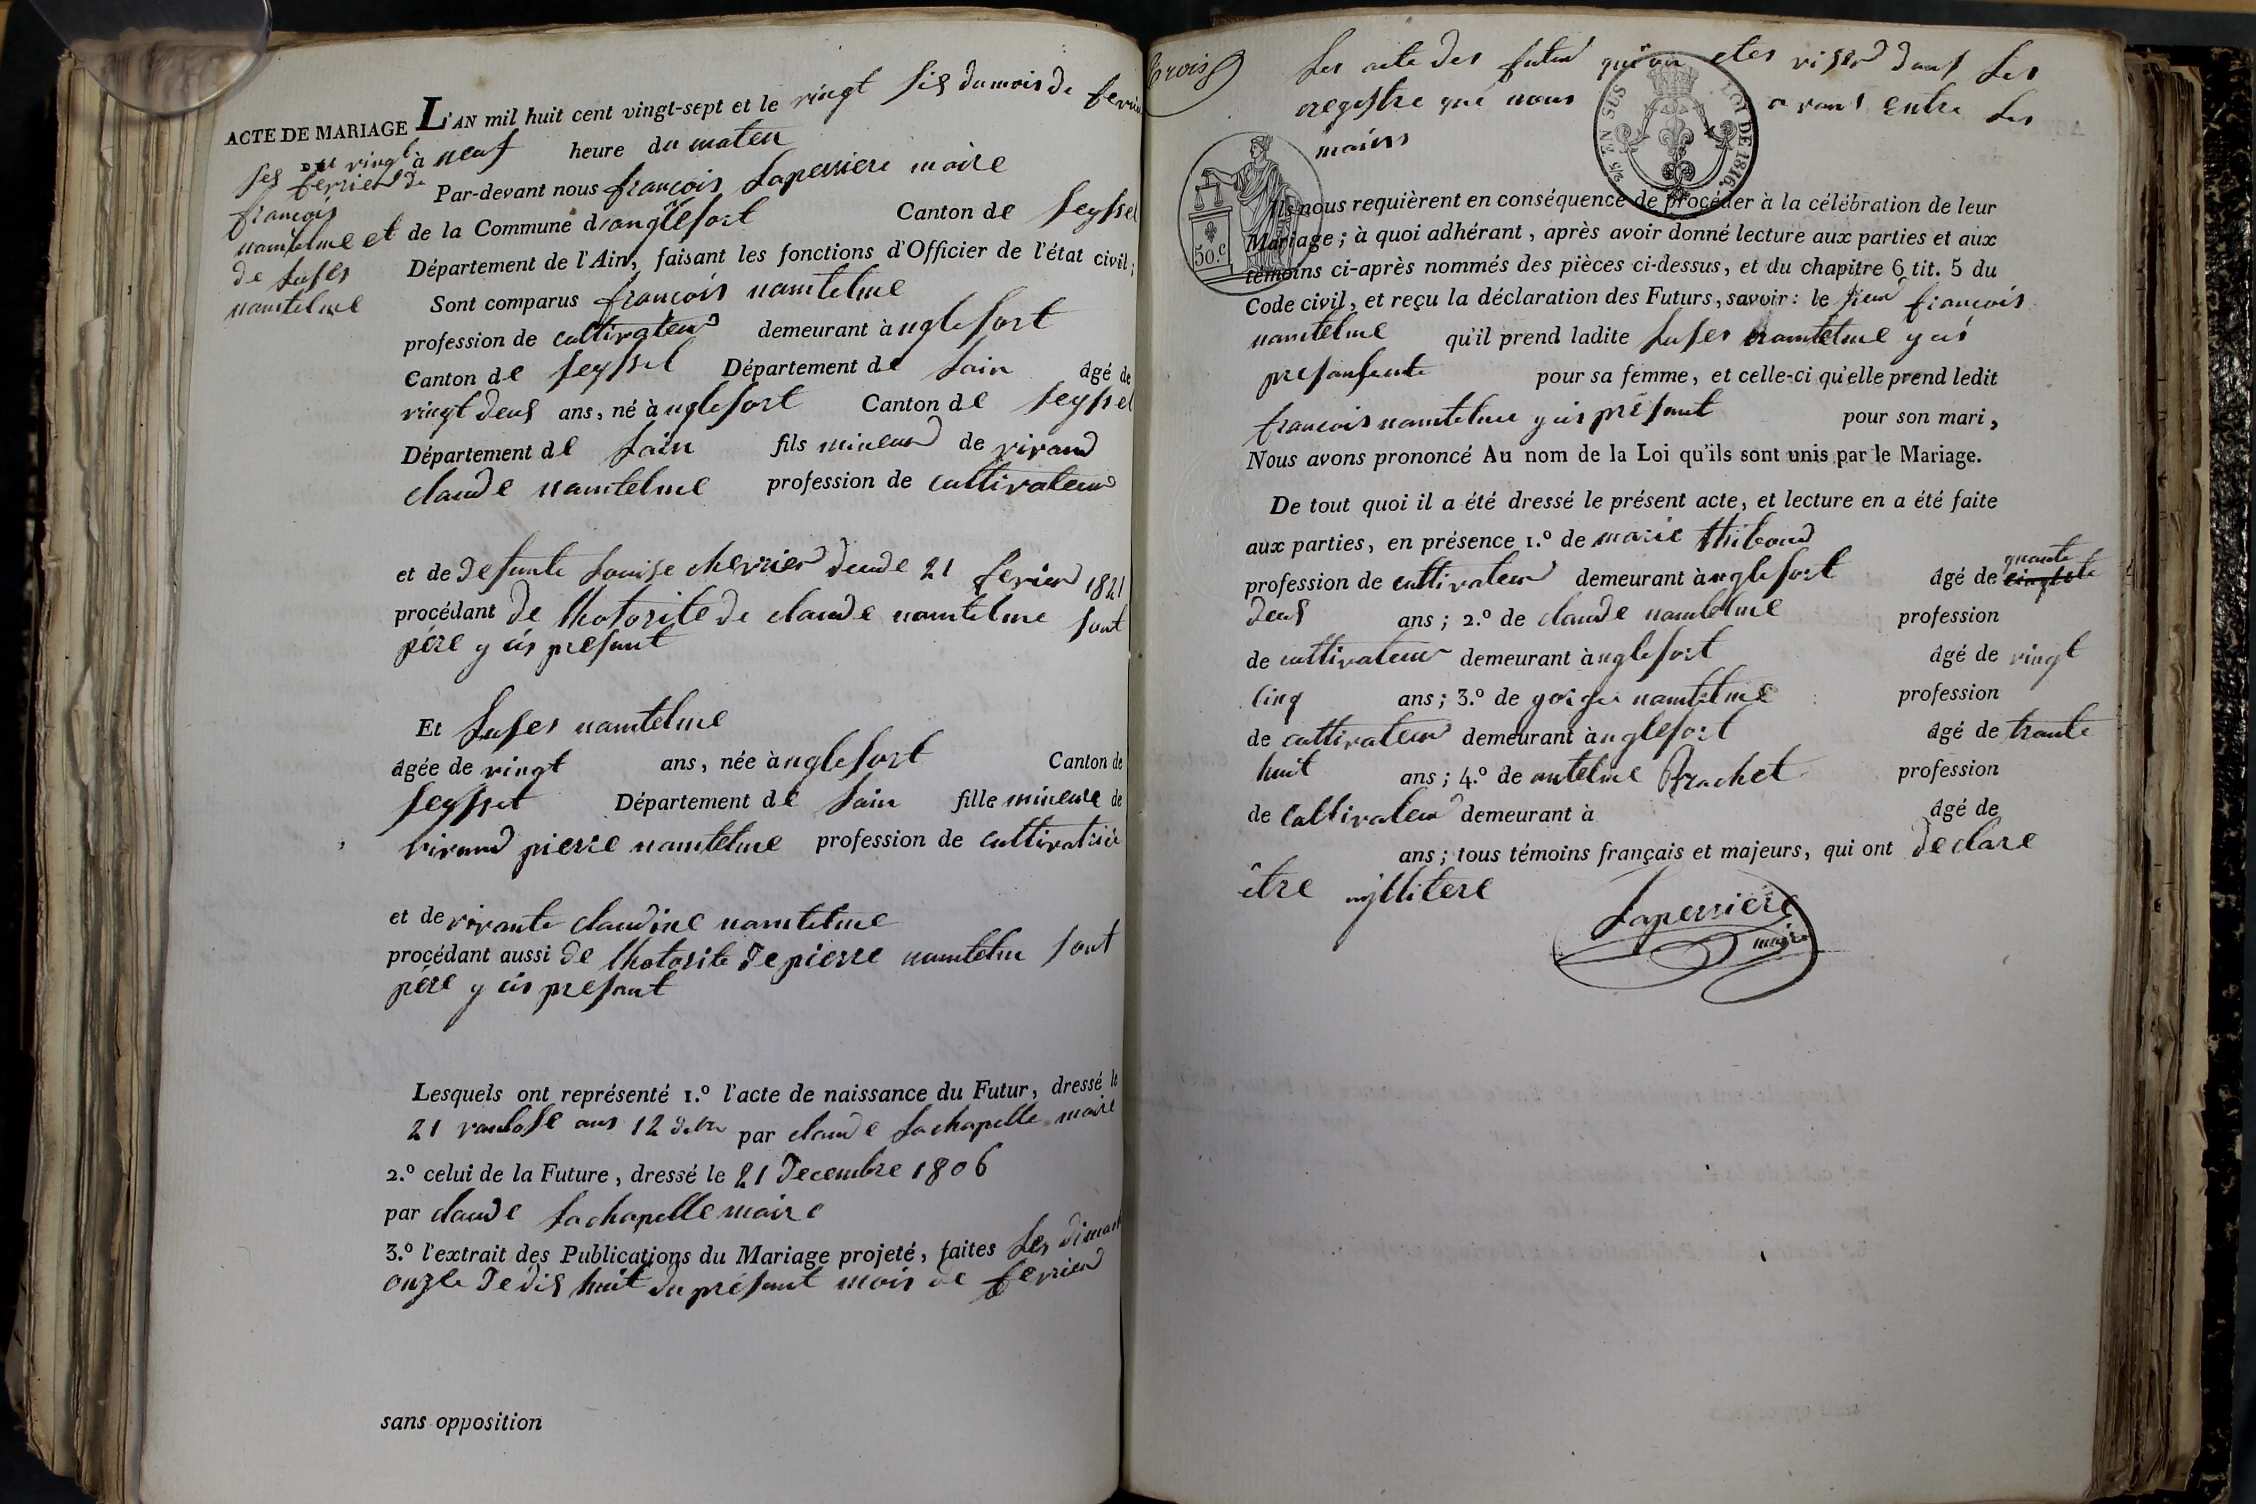 ACTE DE MARIAGE L'AN mil huit cent vingt-sept et le vingt sis du mois de fevrier
DU vingt
ses fevrier de
francois
namtelme et
de suses
namtelme
à neuf heure du maten
Par-devant nous francois Laperriere maire
de la Commune d'anglefort Canton de seyssel
Département de l'Ain, faisant les fonctions d'Officier de l'état civil;
Sont comparus francois namtelme
profession de cultivateur demeurant à nglefort
Canton de seyssel Département de Lain âgé de
vingt deus ans, né à nglefort Canton de seyssel
Département de Lain fils mineur de vivand
claude namtelme profession de cultivateur
et de defunte Louise chervier 21 fevrier 1821
procédant de lhotorite de claude namtelme sont
père y cis presant
Et suses namtelme
âgée de vingt ans, née à nglefort Canton de
seyssel Département de Lain fille mineure de
vivand pierre namtelme profession de cultivatrice
et de vivante claudine namtelme
procédant aussi de lhotorite de pierre namtelme sont
père y cis presant
Lesquels ont représenté 1.º l'acte de naissance du Futur, dressé le
21 vantose ans 12 par claude Lachapelle maire
2.º celui de la Future, dressé le 21 decembre 1806
par claude Lachapelle maire
3.º l'extrait des Publications du Mariage projeté, faites les dimanch
onze de dis huit du présant mois de fevrier
sans opposition
trois
Les acte des futur qui on etes viser dans les
regestre que nous avons entre les
mains
2/5 EN SUS
LOI DE 1816.
50.C
Ils nous requièrent en conséquence de procéder à la célébration de leur
Mariage; à quoi adhérant, après avoir donné lecture aux parties et aux
témoins ci-après nommés des pièces ci-dessus, et du chapitre 6 tit. 5 du
Code civil, et reçu la déclaration des Futurs, savoir: le sieur francois
namtelme qu'il prend ladite suses namtelme y cis
presante pour sa femme, et celle-ci qu'elle prend ledit
francois namtelme y cis présant pour son mari,
Nous avons prononcé Au nom de la Loi qu'ils sont unis par le Mariage.
De tout quoi il a été dressé le présent acte, et lecture en a été faite
aux parties, en présence 1.º de marie thiboud
profession de cultivateur demeurant à nglefort âgé de quante
deus ans; 2.º de claude namtelme profession
de cultivateur demeurant à nglefort âgé de vingt
cinq ans; 3.º de gorge namtelme profession
de cultivateur demeurant à nglefort âgé de trante
huit ans; 4.º de antelme Brachet profession
de Cultivateur demeurant à âgé de
ans; tous témoins français et majeurs, qui ont declare
être illitere
Laperriere
maire